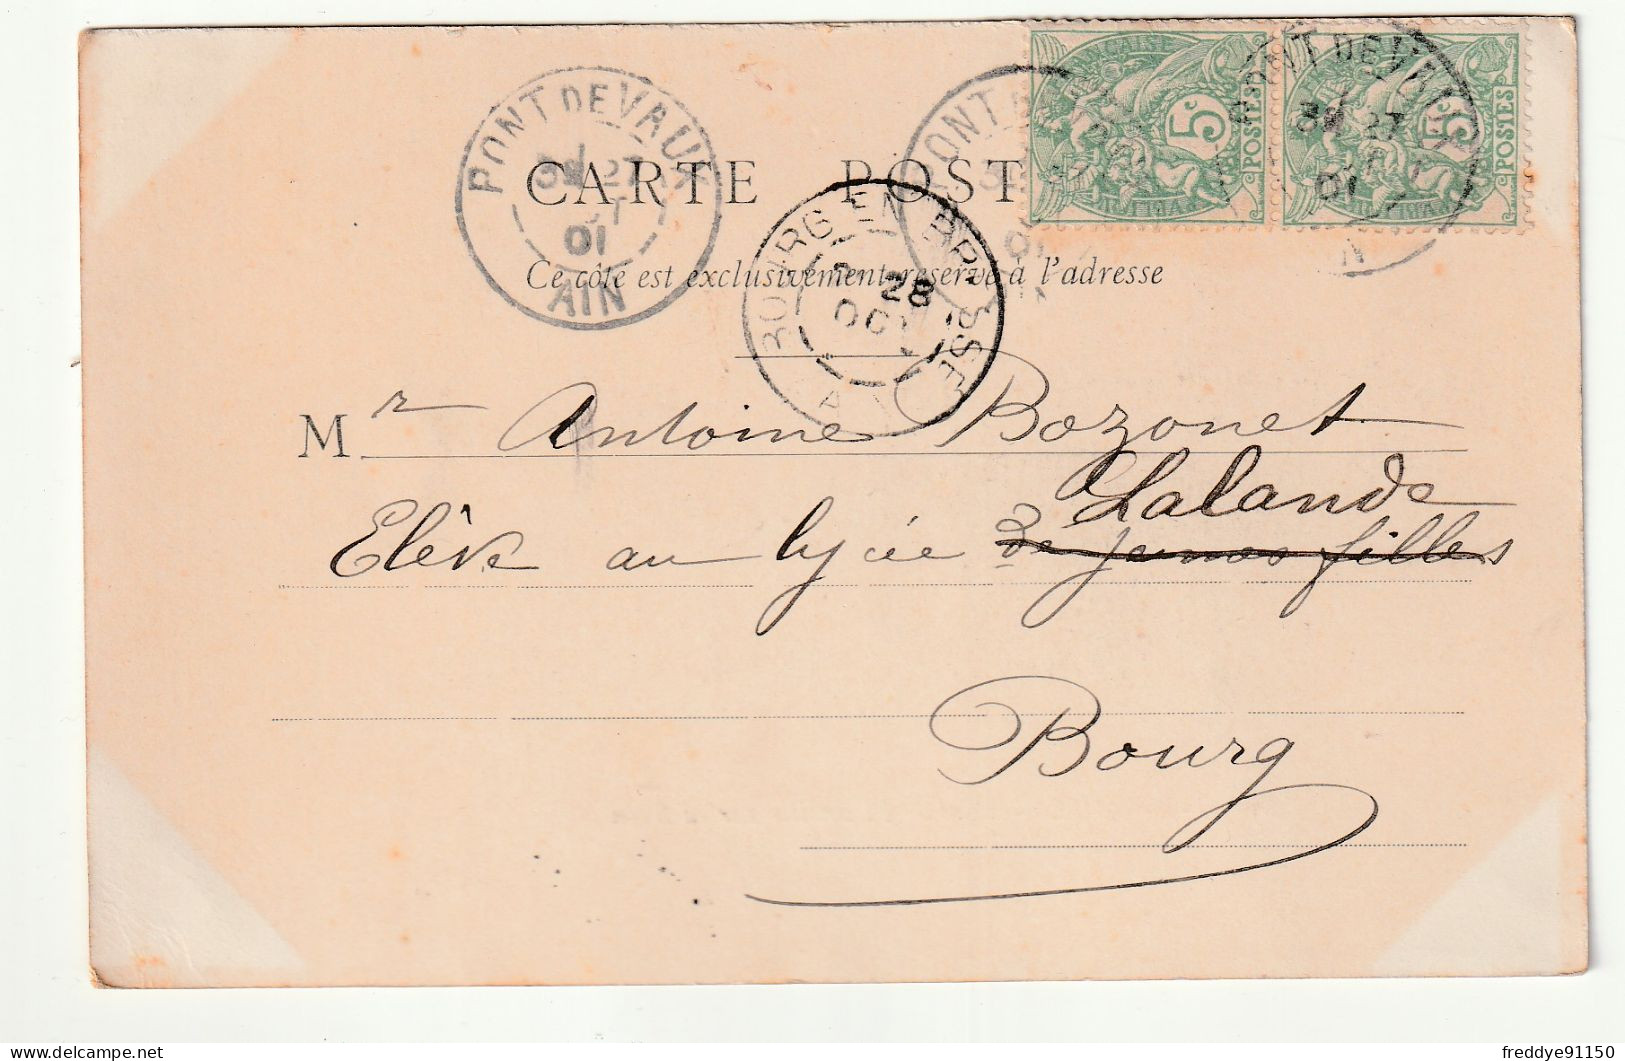 PONT DE VAUX
27
OCT
01
AIN
CARTE POST
Ce côté est exclusivement réservé à l'adresse
BOURG EN BRESSE
28
OCT
5c
POSTES
PONT DE VAUX
27
01
5
POSTES
Mr Antoine Bozonet
Lalande
Elève au lycée de jeunes filles
Bourg
freddye91150